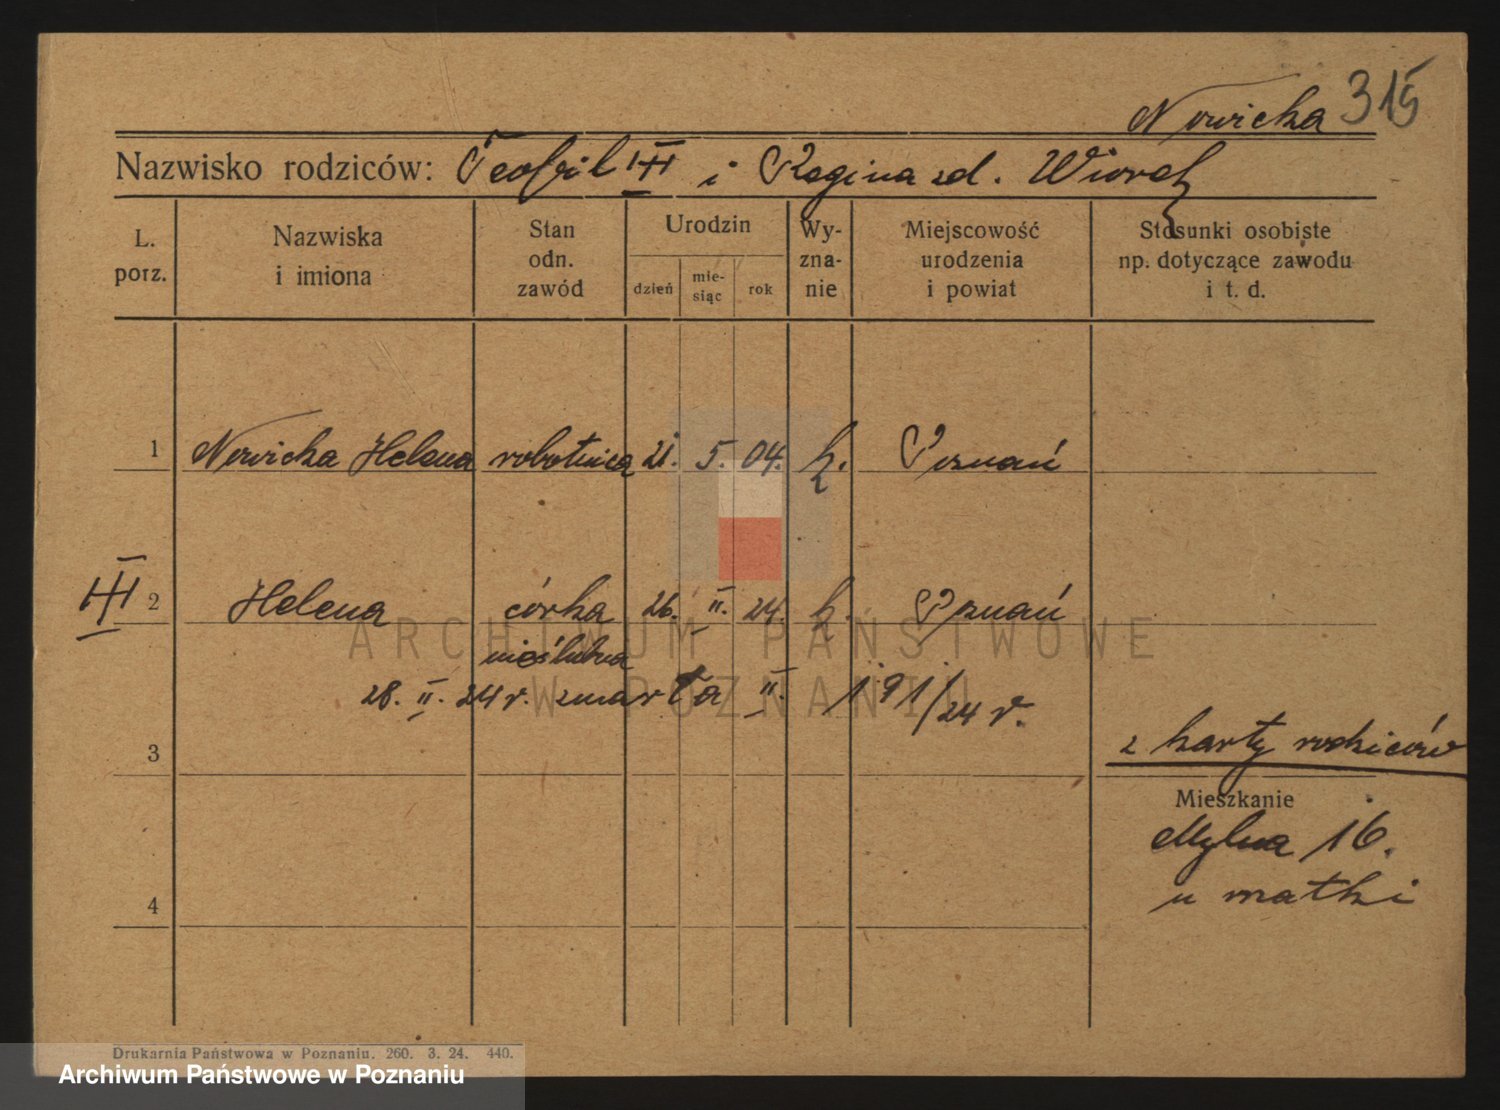 Nowicka 315
Nazwisko rodziców: Teofil i Regina zd. Wiorek
L. porz.
Nazwiska i imiona
Stan odn. zawód
Urodzin
dzień
mie-siąc
rok
Wy-zna-nie
Miejscowość urodzenia i powiat
Stosunki osobiste np. dotyczące zawodu i t. d.
1 Nowicka Helena robotnica 21. 5. 04. k. Poznań
2 Helena córka 26. II. 24. k. Poznań
nieślubna
28. II. 24 r. zmarła II. 191/24 r.
3 z karty rodziców
Mieszkanie
Mylna 16.
u matki
4
Drukarnia Państwowa w Poznaniu. 260. 3. 24. 440.
ARCHIWUM PAŃSTWOWE
W POZNANIU
Archiwum Państwowe w Poznaniu